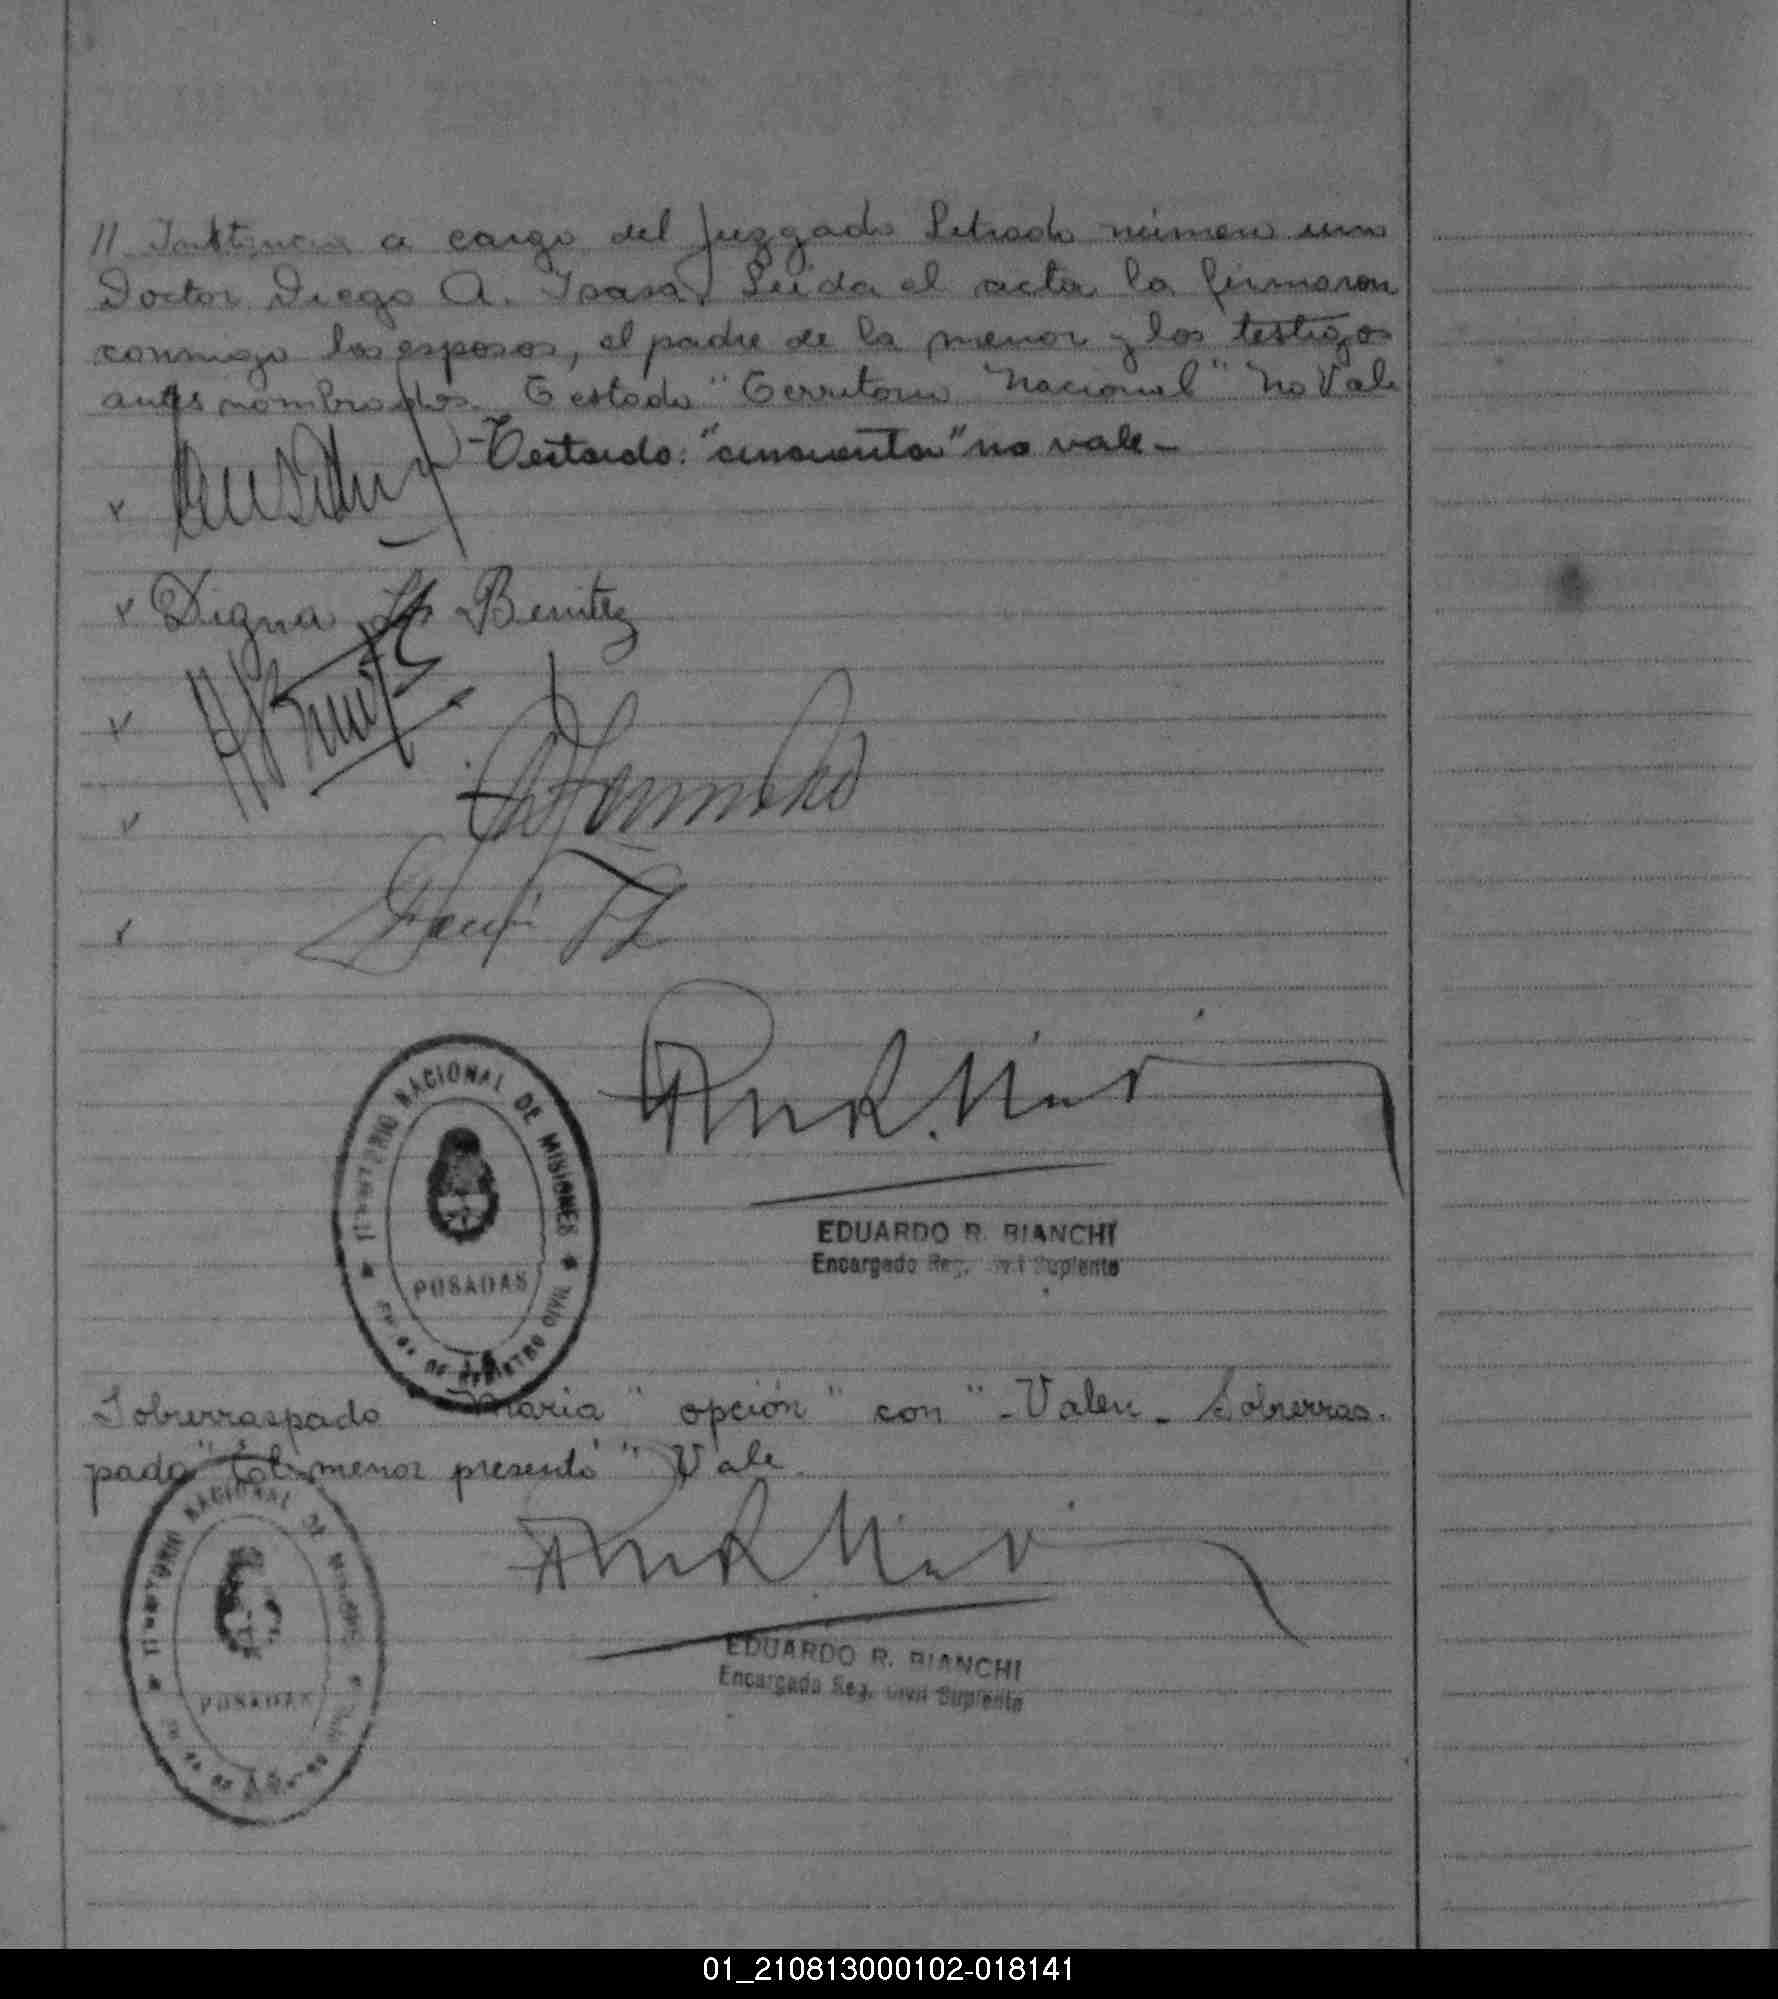 // Instancia a cargo del Juzgado Letrado número uno
Doctor Diego A. Isasa. Leida el acta la firmaron
conmigo los esposos, el padre de la menor y los testigos
antes nombrados. Testado "Territorio Nacional" No Vale
- Testado: "cincuenta" no vale -
Digna Benitez
TERRITORIO NACIONAL DE MISIONES
POSADAS
DE REGISTRO CIVIL
EDUARDO R. BIANCHI
Encargado Reg. Civil Suplente
Sobrerraspado "María" opción" con" - Valen - Sobrerras-
pado menor presentó" Vale
TERRITORIO NACIONAL DE MISIONES
POSADAS
EDUARDO R. BIANCHI
Encargado Reg. Civil Suplente
01_210813000102-018141